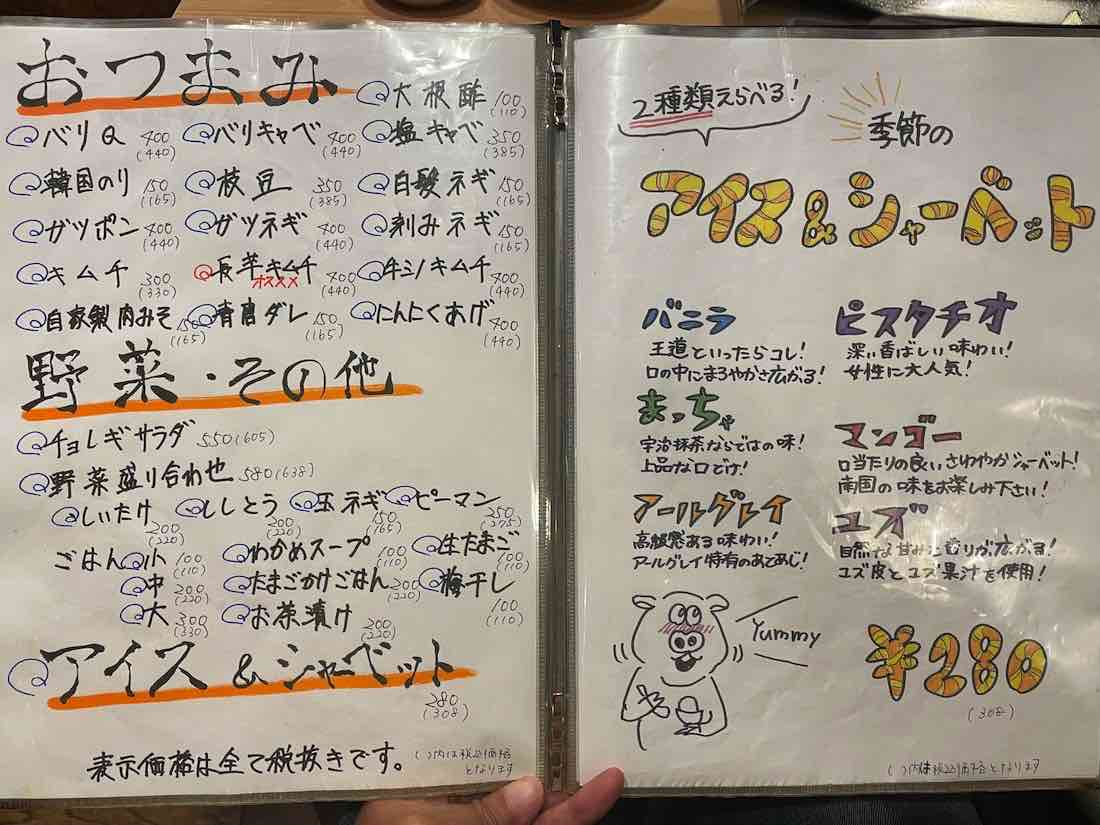 おつまみ
大根酢 100 (110)
バリQ 400 (440) バリキャベ 400 (440) 塩キャベ 350 (385)
韓国のり 150 (165) 枝豆 350 (385) 白髪ネギ 150 (165)
ガツポン 400 (440) ガツネギ 400 (440) 刻みネギ 150 (165)
キムチ 300 (330) 長芋キムチ 400 (440) 牛シソキムチ 400 (440)
オススメ
自家製肉みそ 150 (165) 青唐ダレ 150 (165) にんにくあげ 400 (440)
野菜・その他
チョレギサラダ 550(605)
野菜盛り合わせ 580(638)
しいたけ 200 (220) ししとう 200 (220) 玉ネギ 150 (165) ピーマン 250 (275)
ごはん 小 100 (110) わかめスープ 100 (110) 生たまご 100 (110)
中 200 (220) たまごかけごはん 200 (220) 梅干し 100 (110)
大 300 (330) お茶漬け 200 (220)
アイス & シャーベット
280 (308)
表示価格は全て税抜きです。
( )内は税込価格
となります
2種類えらべる!
季節の
アイス&シャーベット
バニラ
王道といったらコレ!
口の中にまろやかさ広がる!
まっちゃ
宇治抹茶ならではの味!
上品な口どけ!
アールグレイ
高級感ある味わい!
アールグレイ特有のあとあじ!
ピスタチオ
深い香ばしい味わい!
女性に大人気!
マンゴー
口当たりの良いさわやかシャーベット!
南国の味をお楽しみ下さい!
ユズ
自然な甘みと香りが広がる!
ユズ皮とユズ果汁を使用!
Yummy
¥280
(308)
( )内は税込価格となります